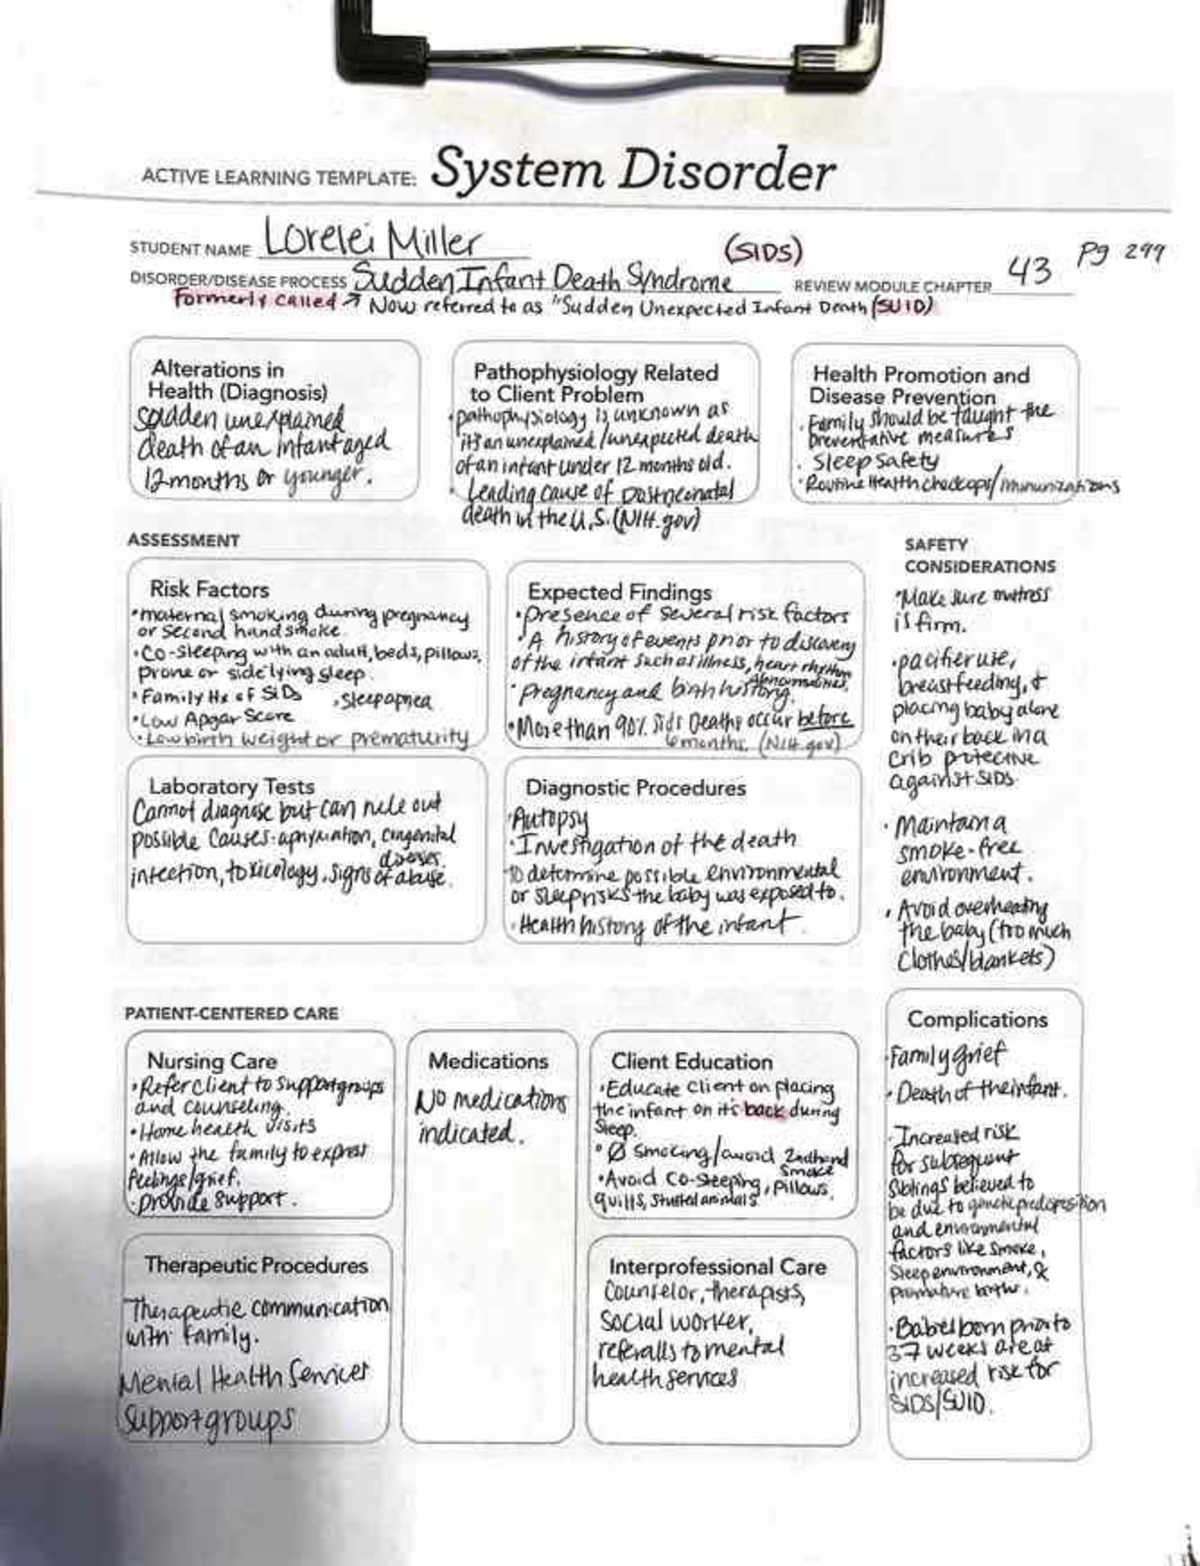 ACTIVE LEARNING TEMPLATE: System Disorder
STUDENT NAME Lorelei Miller
(SIDS)
DISORDER/DISEASE PROCESS Sudden Infant Death Syndrome
REVIEW MODULE CHAPTER 43 Pg 299
Formerly called ↗ Now referred to as "Sudden Unexpected Infant Death (SUID)
Alterations in
Health (Diagnosis)
Sudden unexplained
death of an infant aged
12 months or younger.
Pathophysiology Related
to Client Problem
• pathophysiology is unknown as
it's an unexplained/unexpected death
of an infant under 12 months old.
• Leading cause of postneonatal
death in the U.S. (NIH.gov)
Health Promotion and
Disease Prevention
• Family should be taught the
preventative measures
• Sleep Safety
• Routine Health checkups/immunizations
ASSESSMENT
Risk Factors
• maternal smoking during pregnancy
or second hand smoke.
• Co-sleeping with an adult, beds, pillows,
prone or side lying sleep.
• Family Hx of SIDS • Sleep apnea
• Low Apgar Score
• Low birth weight or prematurity
Expected Findings
• Presence of several risk factors
• A history of events prior to discovery
of the infant such as illness, heart rhythm
Abnormalities,
• Pregnancy and birth history.
• More than 90% Sids Deaths occur before
6 months. (NIH.gov)
Laboratory Tests
Cannot diagnose but can rule out
possible causes. congenital
diseases.
infection, toxicology, signs of abuse.
Diagnostic Procedures
• Autopsy
• Investigation of the death
to determine possible environmental
or sleep risks the baby was exposed to.
• Health history of the infant.
SAFETY
CONSIDERATIONS
• Make sure mattress
is firm.
• pacifier use,
breastfeeding, &
placing baby alone
on their back in a
crib protective
against SIDS
• Maintain a
smoke-free
environment.
• Avoid overheating
the baby (too much
clothes/blankets)
PATIENT-CENTERED CARE
Nursing Care
• Refer client to support groups
and counseling.
• Home health visits
• Allow the family to express
feelings/grief.
• Provide support.
Medications
No medications
indicated.
Client Education
• Educate client on placing
the infant on it's back during
sleep.
• Ø smoking/avoid 2ndhand
smoke
• Avoid Co-sleeping, pillows,
quilts, stuffed animals
Therapeutic Procedures
Therapeutic communication
with family.
Mental Health Services
Support groups
Interprofessional Care
Counselor, therapists,
social worker,
referalls to mental
health services
Complications
• Family grief
• Death of the infant.
• Increased risk
for subsequent
siblings believed to
be due to genetic predisposition
and environmental
factors like smoke,
sleep environment, &
premature births.
• Babies born prior to
37 weeks are at
increased risk for
SIDS/SUID.